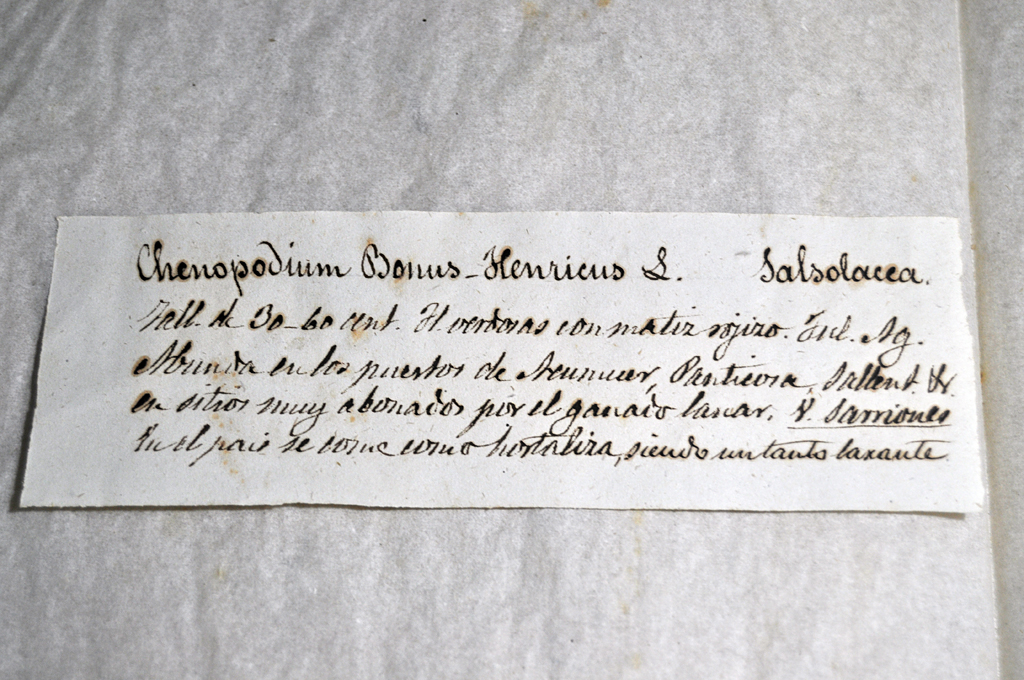 Chenopodium Bonus-Henricus L. Salsolacea.
Tall. de 30-60 cent. Fl verdosas con matiz rojizo. Jul. Ag.
Abunda en los puertos de Acumuer, Panticosa, Sallent &.
en sitios muy abonados por el ganado lanar. V. Sarriones
En el pais se come como hortaliza, siendo un tanto laxante